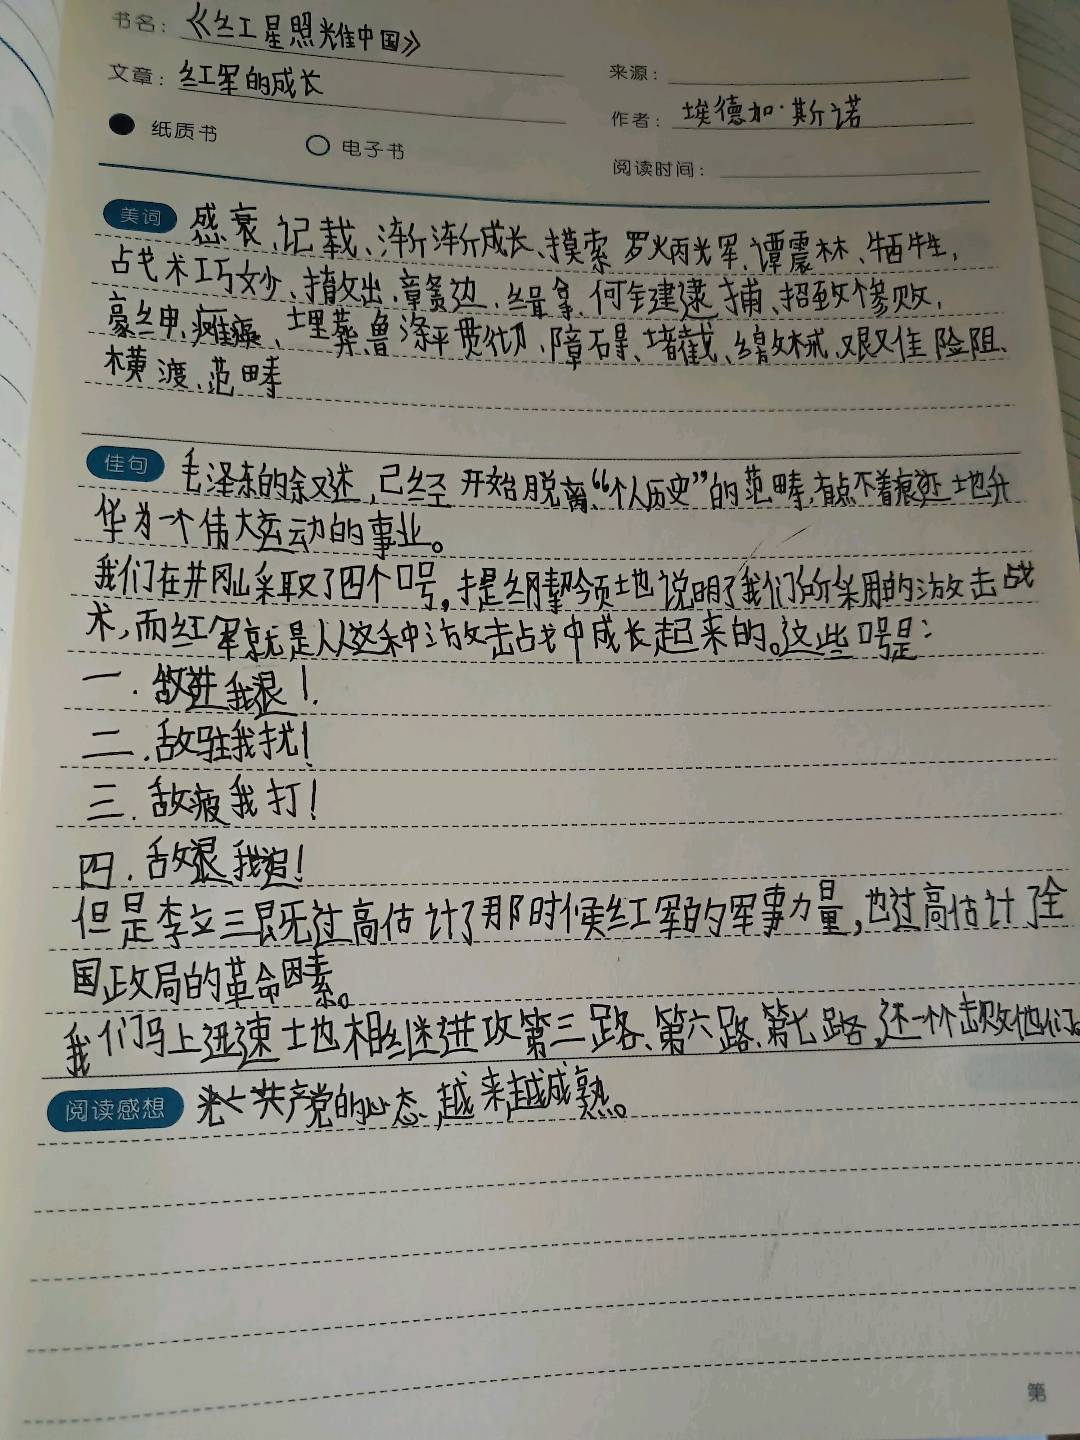 书名：《红星照耀中国》
文章：红军的成长
来源：
作者：埃德加·斯诺
纸质书
电子书
阅读时间：
美词 盛衰、记载、渐渐成长、摸索 罗炳辉军、谭震林、牺牲，
战术巧妙、撤出、章赣边、缉拿、何键逮捕、招致惨败，
豪绅、瘫痪、埋葬、鲁涤平贯彻、障碍、堵截、缴械、艰难险阻、
横渡、范畴
佳句 毛泽东的叙述，已经开始脱离“个人历史”的范畴，有点不着痕迹地升
华为一个伟大运动的事业。
我们在井冈山采取了四个口号，提纲挈领地说明了我们所采用的游击战
术，而红军就是从这种游击战中成长起来的。这些口号是：
一．敌进我退！
二．敌驻我扰！
三．敌疲我打！
四．敌退我追！
但是李立三既过高估计了那时候红军的军事力量，也过高估计了全
国政局的革命因素。
我们马上迅速地相继进攻第三路、第六路、第七路，逐一个击败他们。
阅读感想 共产党的心态，越来越成熟。
第